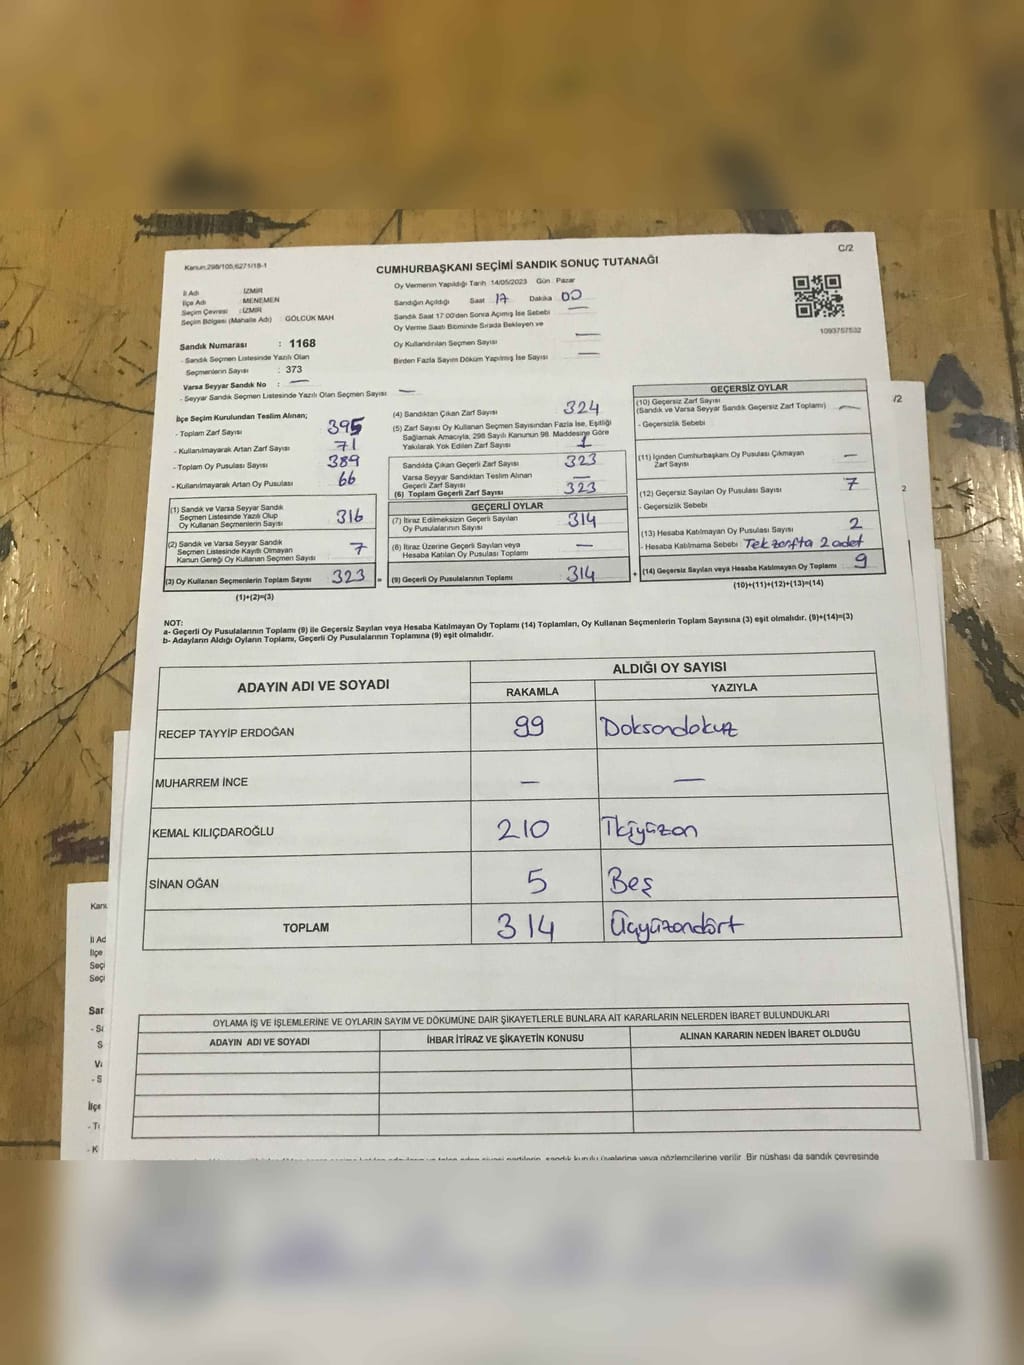 Kanun:298/105,6271/18-1
C/2
CUMHURBAŞKANI SEÇİMİ SANDIK SONUÇ TUTANAĞI
İl Adı : İZMİR
İlçe Adı : MENEMEN
Seçim Çevresi : İZMİR
Seçim Bölgesi (Mahalle Adı) : GÖLCÜK MAH
Sandık Numarası : 1168
- Sandık Seçmen Listesinde Yazılı Olan
Seçmenlerin Sayısı : 373
Varsa Seyyar Sandık No : —
- Seyyar Sandık Seçmen Listesinde Yazılı Olan Seçmen Sayısı: —
Oy Vermenin Yapıldığı Tarih 14/05/2023 Gün Pazar
Sandığın Açıldığı Saat 17 Dakika 00
Sandık Saat 17:00'den Sonra Açımış İse Sebebi —
Oy Verme Saati Bitiminde Sırada Bekleyen ve
Oy Kullandırılan Seçmen Sayısı —
Birden Fazla Sayım Döküm Yapılmış İse Sayısı —
1093757532
İlçe Seçim Kurulundan Teslim Alınan;
- Toplam Zarf Sayısı 395
- Kullanılmayarak Artan Zarf Sayısı 71
- Toplam Oy Pusulası Sayısı 389
- Kullanılmayarak Artan Oy Pusulası 66
(1) Sandık ve Varsa Seyyar Sandık
Seçmen Listesinde Yazılı Olup
Oy Kullanan Seçmenlerin Sayısı 316
(2) Sandık ve Varsa Seyyar Sandık
Seçmen Listesinde Kayıtlı Olmayan
Kanun Gereği Oy Kullanan Seçmen Sayısı 7
(3) Oy Kullanan Seçmenlerin Toplam Sayısı 323 =
(1)+(2)=(3)
(4) Sandıktan Çıkan Zarf Sayısı 324
(5) Zarf Sayısı Oy Kullanan Seçmen Sayısından Fazla İse, Eşitliği
Sağlamak Amacıyla, 298 Sayılı Kanunun 98. Maddesine Göre
Yakılarak Yok Edilen Zarf Sayısı 1
Sandıkta Çıkan Geçerli Zarf Sayısı 323
Varsa Seyyar Sandıktan Teslim Alınan
Geçerli Zarf Sayısı —
(6) Toplam Geçerli Zarf Sayısı 323
GEÇERLİ OYLAR
(7) İtiraz Edilmeksizin Geçerli Sayılan
Oy Pusulalarının Sayısı 314
(8) İtiraz Üzerine Geçerli Sayılan veya
Hesaba Katılan Oy Pusulası Toplamı —
(9) Geçerli Oy Pusulalarının Toplamı 314 +
GEÇERSİZ OYLAR
(10) Geçersiz Zarf Sayısı
(Sandık ve Varsa Seyyar Sandık Geçersiz Zarf Toplamı) —
- Geçersizlik Sebebi
(11) İçinden Cumhurbaşkanı Oy Pusulası Çıkmayan
Zarf Sayısı —
(12) Geçersiz Sayılan Oy Pusulası Sayısı 7
- Geçersizlik Sebebi
(13) Hesaba Katılmayan Oy Pusulası Sayısı 2
- Hesaba Katılmama Sebebi : Tek zarfta 2 adet
(14) Geçersiz Sayılan veya Hesaba Katılmayan Oy Toplamı 9
(10)+(11)+(12)+(13)=(14)
/2
2
NOT:
a- Geçerli Oy Pusulalarının Toplamı (9) ile Geçersiz Sayılan veya Hesaba Katılmayan Oy Toplamı (14) Toplamları, Oy Kullanan Seçmenlerin Toplam Sayısına (3) eşit olmalıdır. (9)+(14)=(3)
b- Adayların Aldığı Oyların Toplamı, Geçerli Oy Pusulalarının Toplamına (9) eşit olmalıdır.
ADAYIN ADI VE SOYADI
ALDIĞI OY SAYISI
RAKAMLA YAZIYLA
RECEP TAYYİP ERDOĞAN 99 Doksandokuz
MUHARREM İNCE — —
KEMAL KILIÇDAROĞLU 210 İkiyüzon
SİNAN OĞAN 5 Beş
TOPLAM 314 Üçyüzondört
OYLAMA İŞ VE İŞLEMLERİNE VE OYLARIN SAYIM VE DÖKÜMÜNE DAİR ŞİKAYETLERLE BUNLARA AİT KARARLARIN NELERDEN İBARET BULUNDUKLARI
ADAYIN ADI VE SOYADI İHBAR İTİRAZ VE ŞİKAYETİN KONUSU ALINAN KARARIN NEDEN İBARET OLDUĞU
sandık kurulu üyelerine veya gözlemcilerine verilir. Bir nüshası da sandık çevresinde
Kanu
İl Ad
İlçe
Seçi
Seçi
Sar
- Sa
S
Va
- S
İlçe
- To
- K